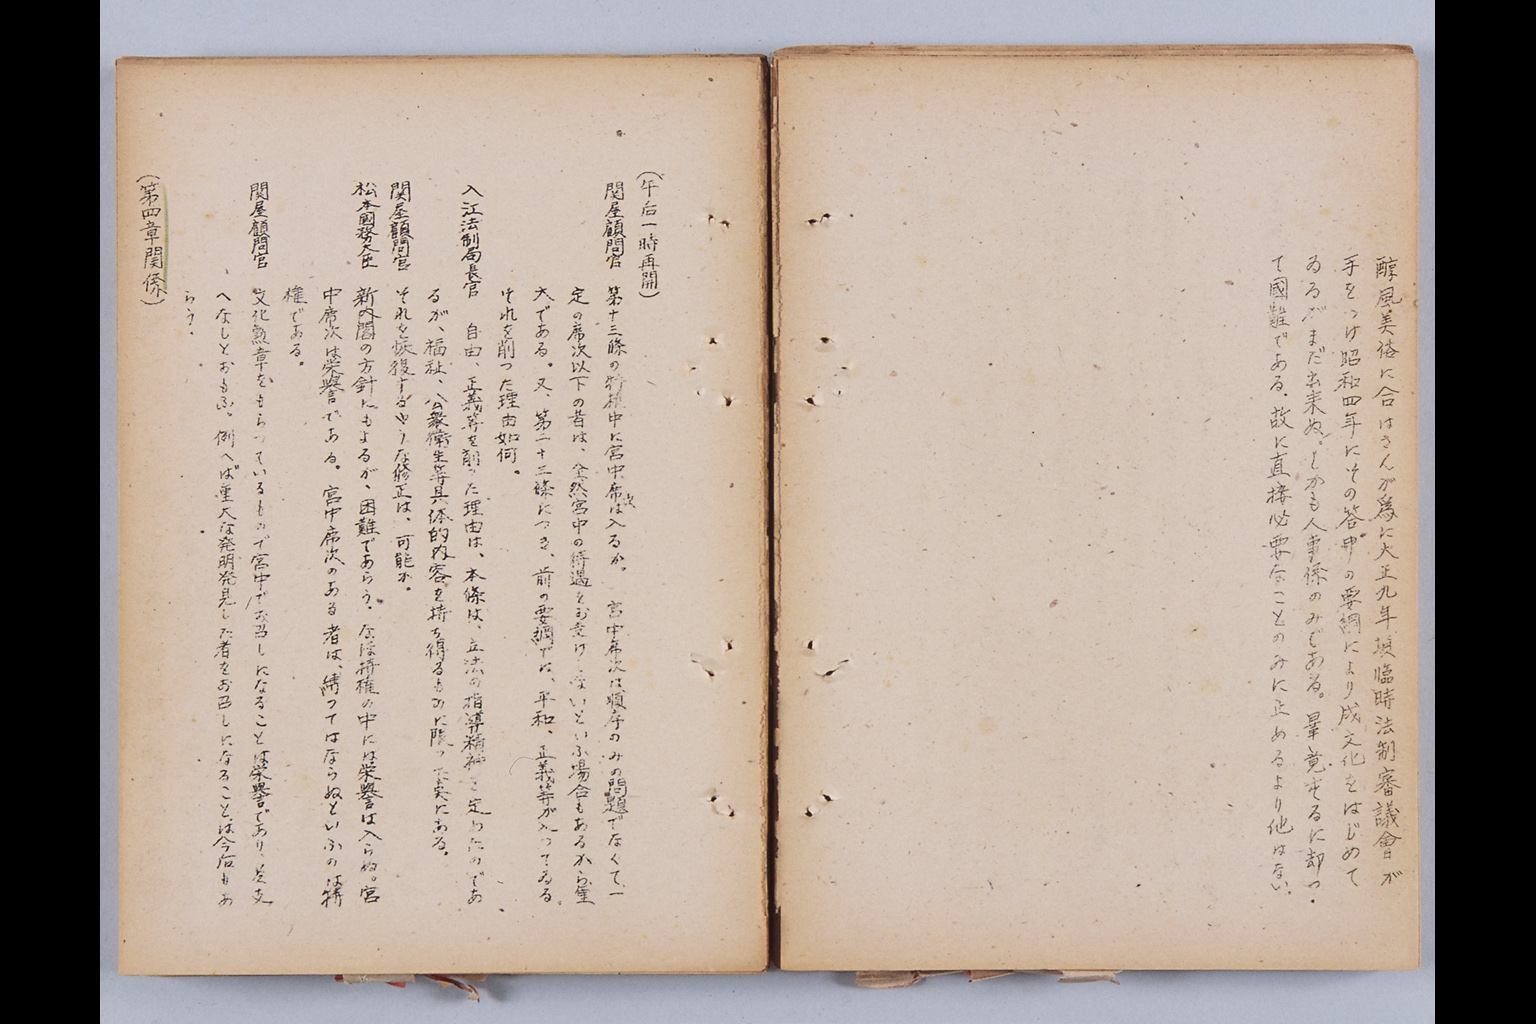 醇風美俗に合はさんが為に大正九年頃臨時法制審議會が
手をつけ昭和四年にその答申の要綱により成文化をはじめて
ゐるがまだ出来ぬ。しかも人事係のみである。畢竟するに却つ
て國難である。故に直接必要なことのみに止めるより他はない。
(午后一時再開)
関屋顧問官 第十三條の特権中に宮中席次は入るか。宮中席次は順序のみの問題でなくて一
定の席次以下の者は、全然宮中の待遇をお受けしないといふ場合もあるから重
大である。又、第二十二條につき、前の要綱では、平和、正義等が入つてゐる
それを削つた理由如何。
入江法制局長官 自由、正義等を削つた理由は、本條は、立法の指導精神を定めたのであ
るが、福祉、公衆衛生等具体的内容を持ち得るものに限つた実にある。
関屋顧問官 それを恢復するやうな修正は、可能か。
松本國務大臣 新内閣の方針にもよるが、困難であらう。なほ特権の中には栄誉は入らぬ。宮
中席次は栄誉である。宮中席次のある者は、縛つてはならぬといふのは特
権である。
関屋顧問官 文化勲章をもらつているもので宮中でお召しになることは栄誉であり、差支
へなしとおもふ。例へば重大な発明発見した者をお召しになることは今后もあ
らう。
(第四章関係)